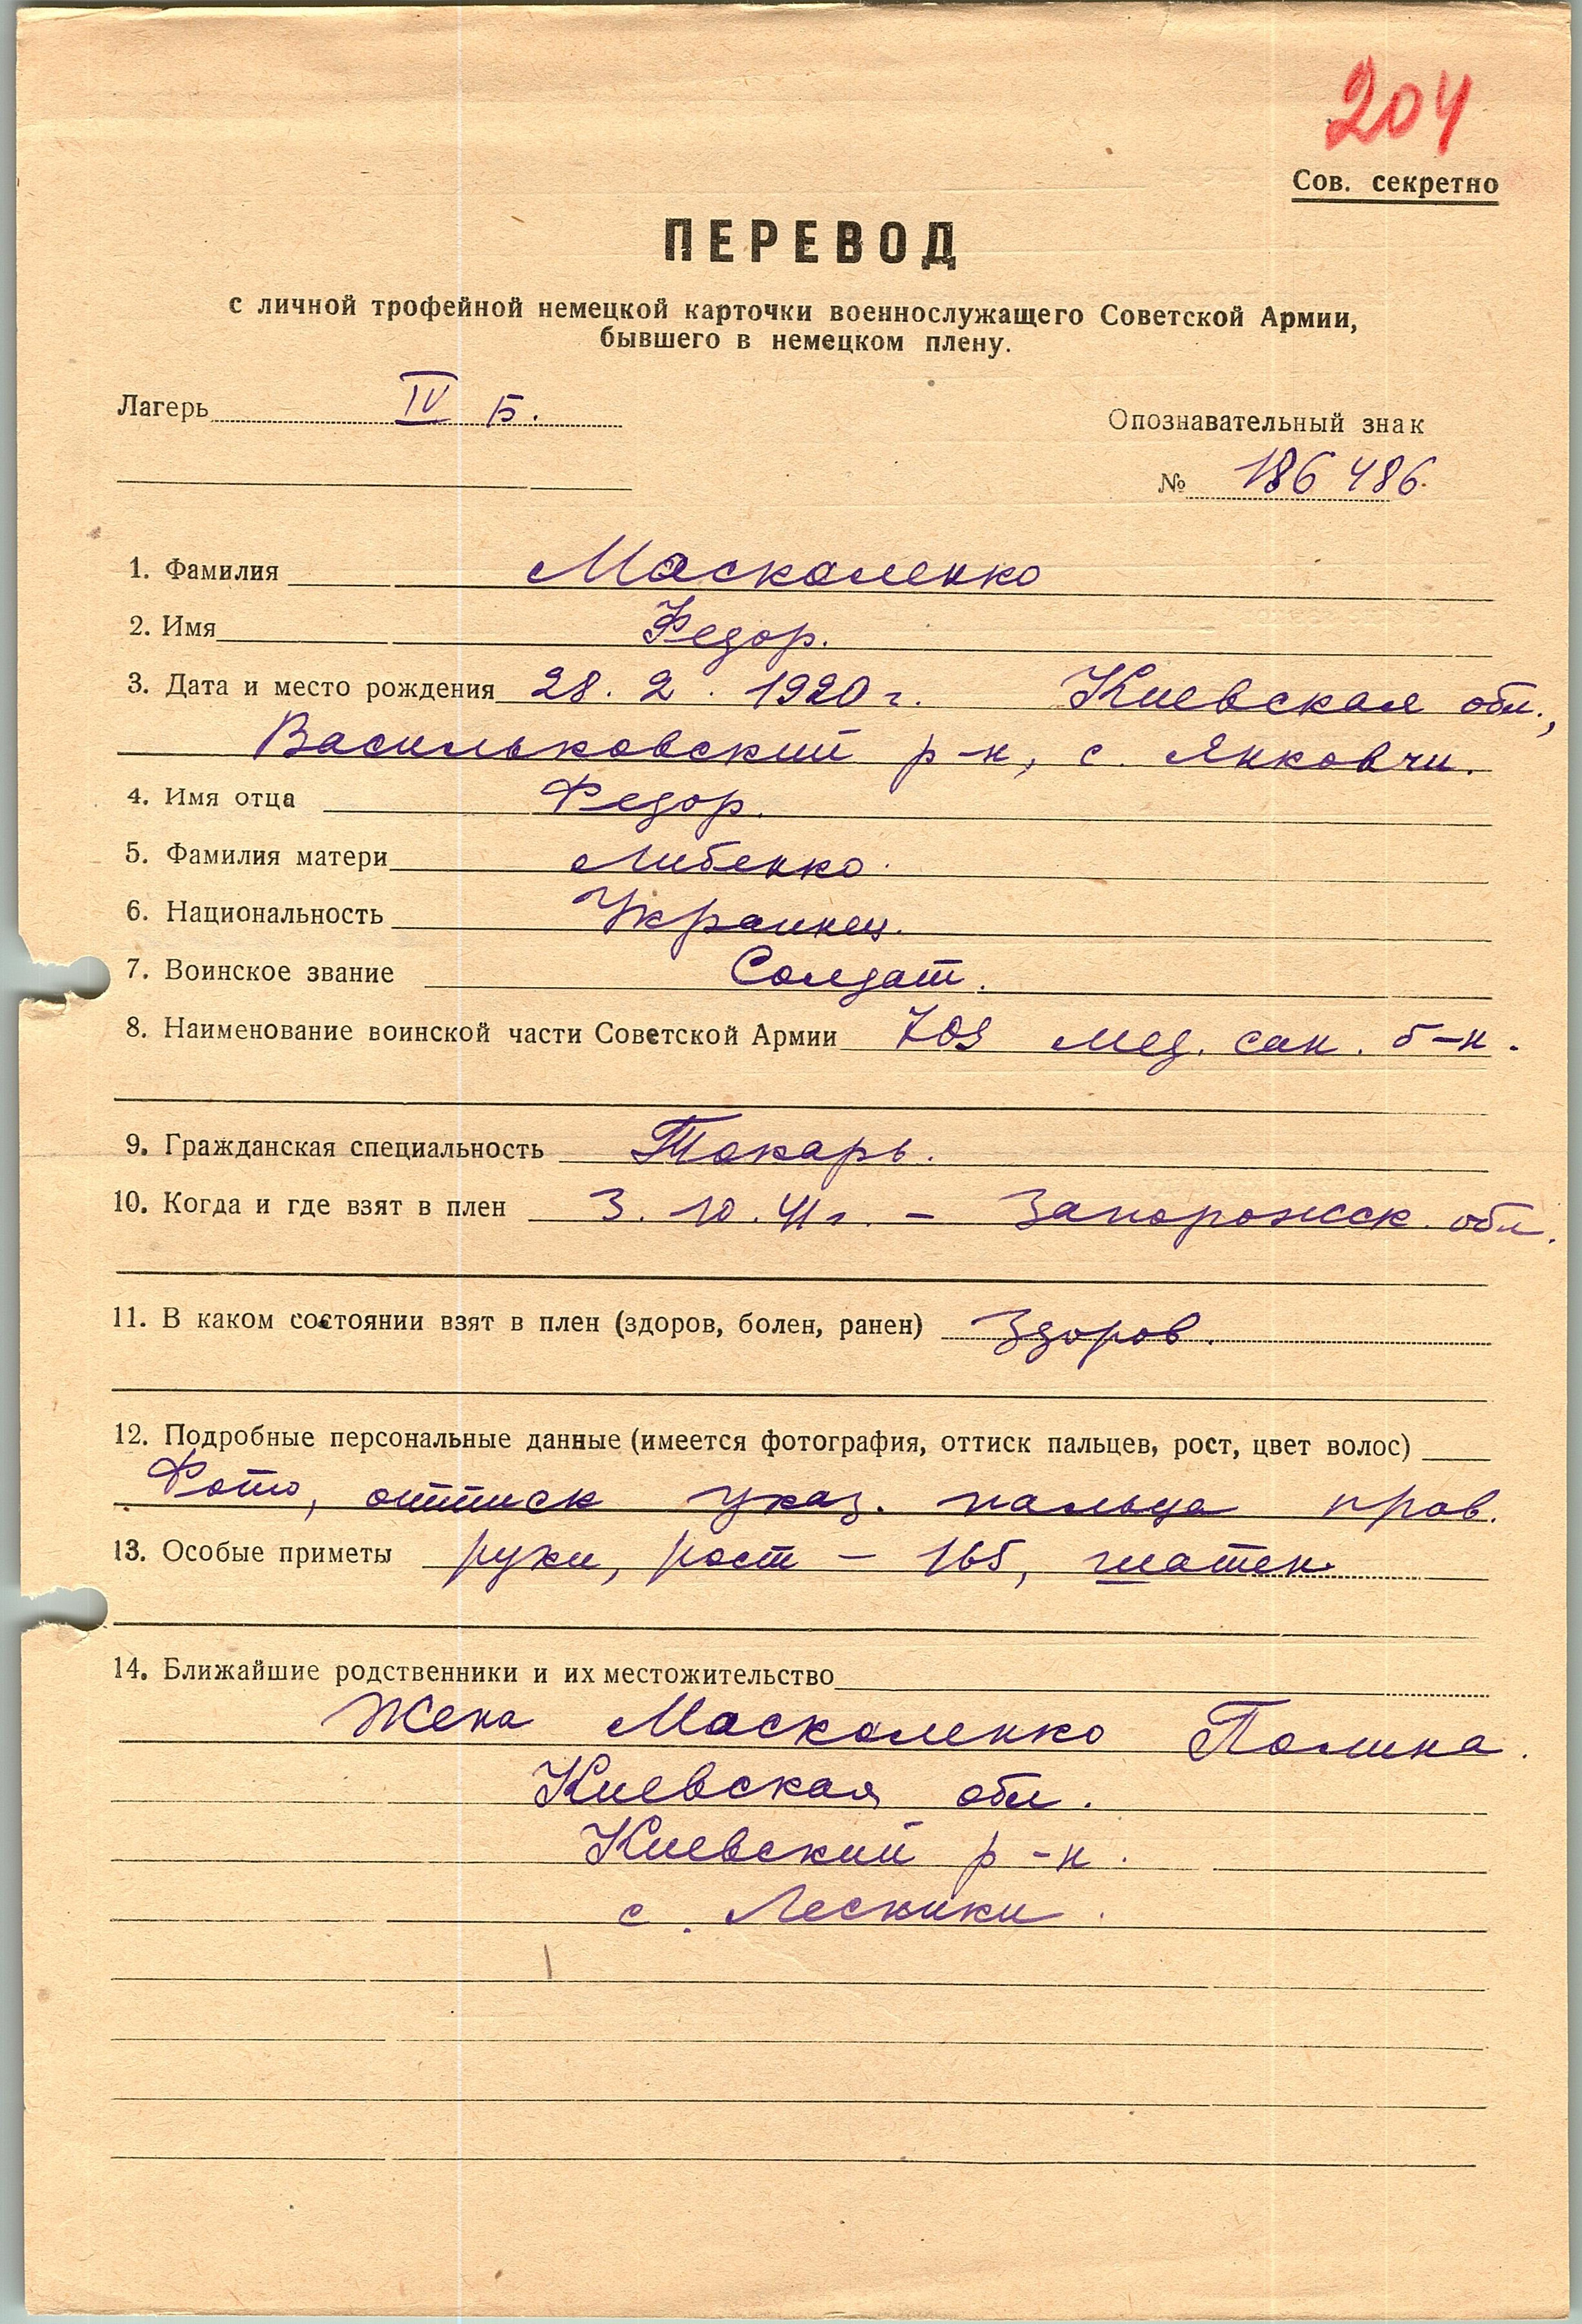 204
Сов. секретно
ПЕРЕВОД
с личной трофейной немецкой карточки военнослужащего Советской Армии,
бывшего в немецком плену.
Лагерь IV Б.
Опознавательный знак
№ 186 486.
1. Фамилия Москаленко
2. Имя Федор.
3. Дата и место рождения 28. 2. 1920 г. Киевская обл.,
Васильковский р-н, с. Янковчи.
4. Имя отца Федор.
5. Фамилия матери Либенко.
6. Национальность Украинец.
7. Воинское звание Солдат.
8. Наименование воинской части Советской Армии мед. сан. б-н.
9. Гражданская специальность Токарь.
10. Когда и где взят в плен 3. 10. 41 г. - Запорожск. обл.
11. В каком состоянии взят в плен (здоров, болен, ранен) Здоров.
12. Подробные персональные данные (имеется фотография, оттиск пальцев, рост, цвет волос)
Фото, оттиск указ. пальца прав.
13. Особые приметы руки, рост - 165, шатен.
14. Ближайшие родственники и их местожительство
Жена Маскаленко Полина.
Киевская обл.
Киевский р-н.
с. Лесники.